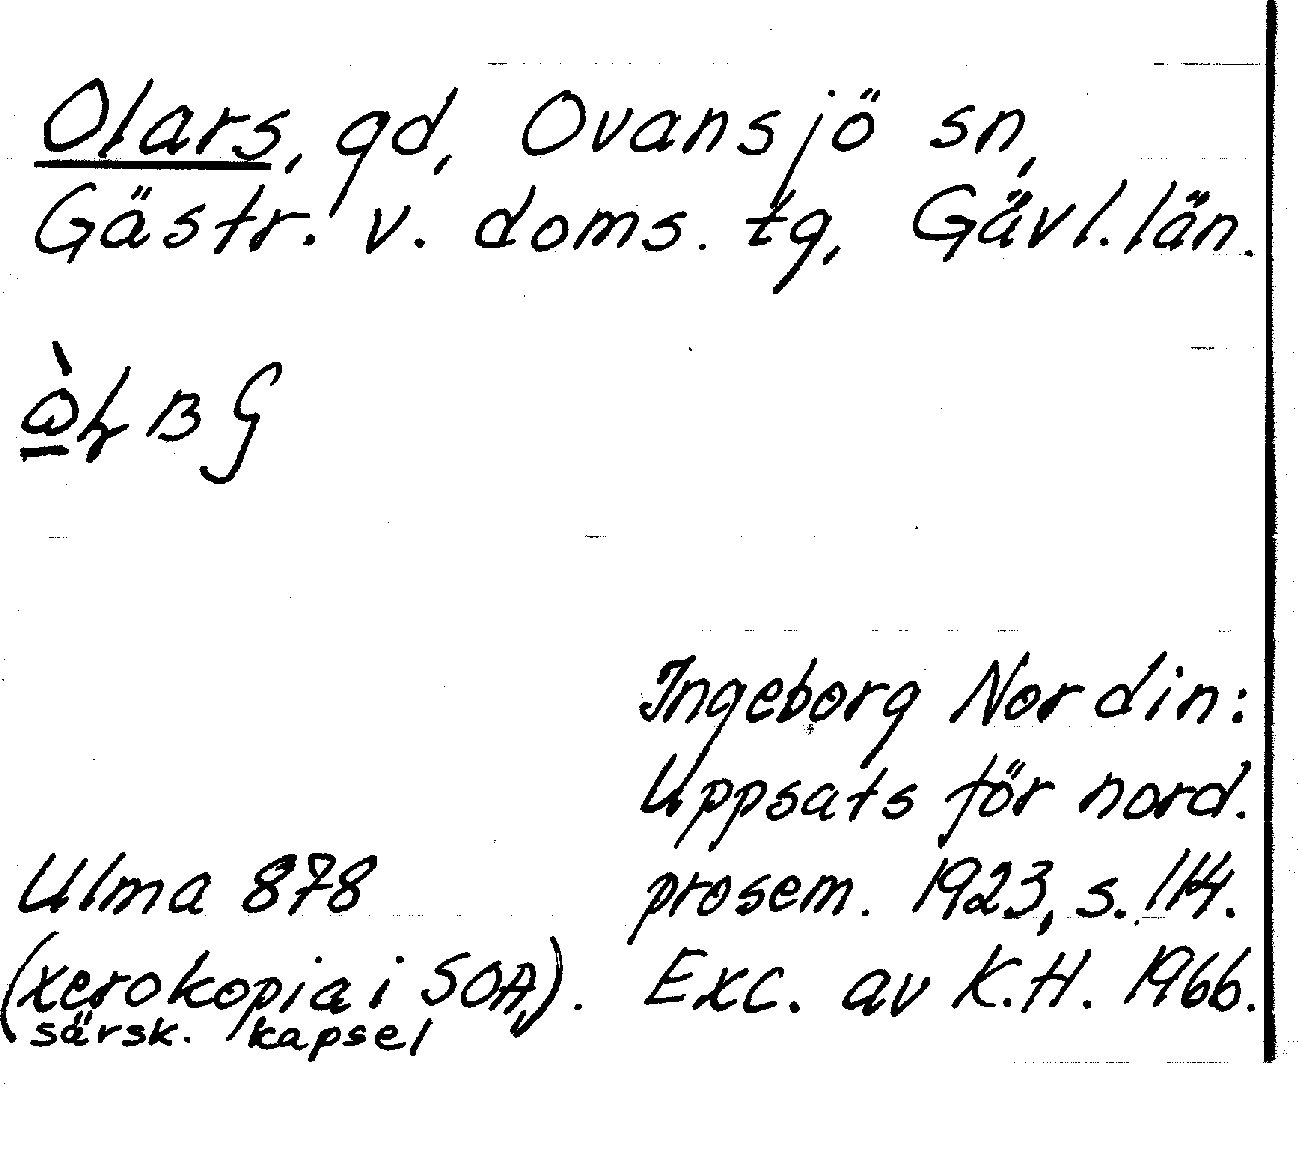 Olars, gd, Ovansjö sn,
Gästr. v. doms. tg, Gävl. län.
Ingeborg Nordin:
Uppsats för nord.
prosem. 1923, s. 114.
Exc. av K.H. 1966.
Ulma 878
(xerokopia i SOA,
särsk. kapsel).